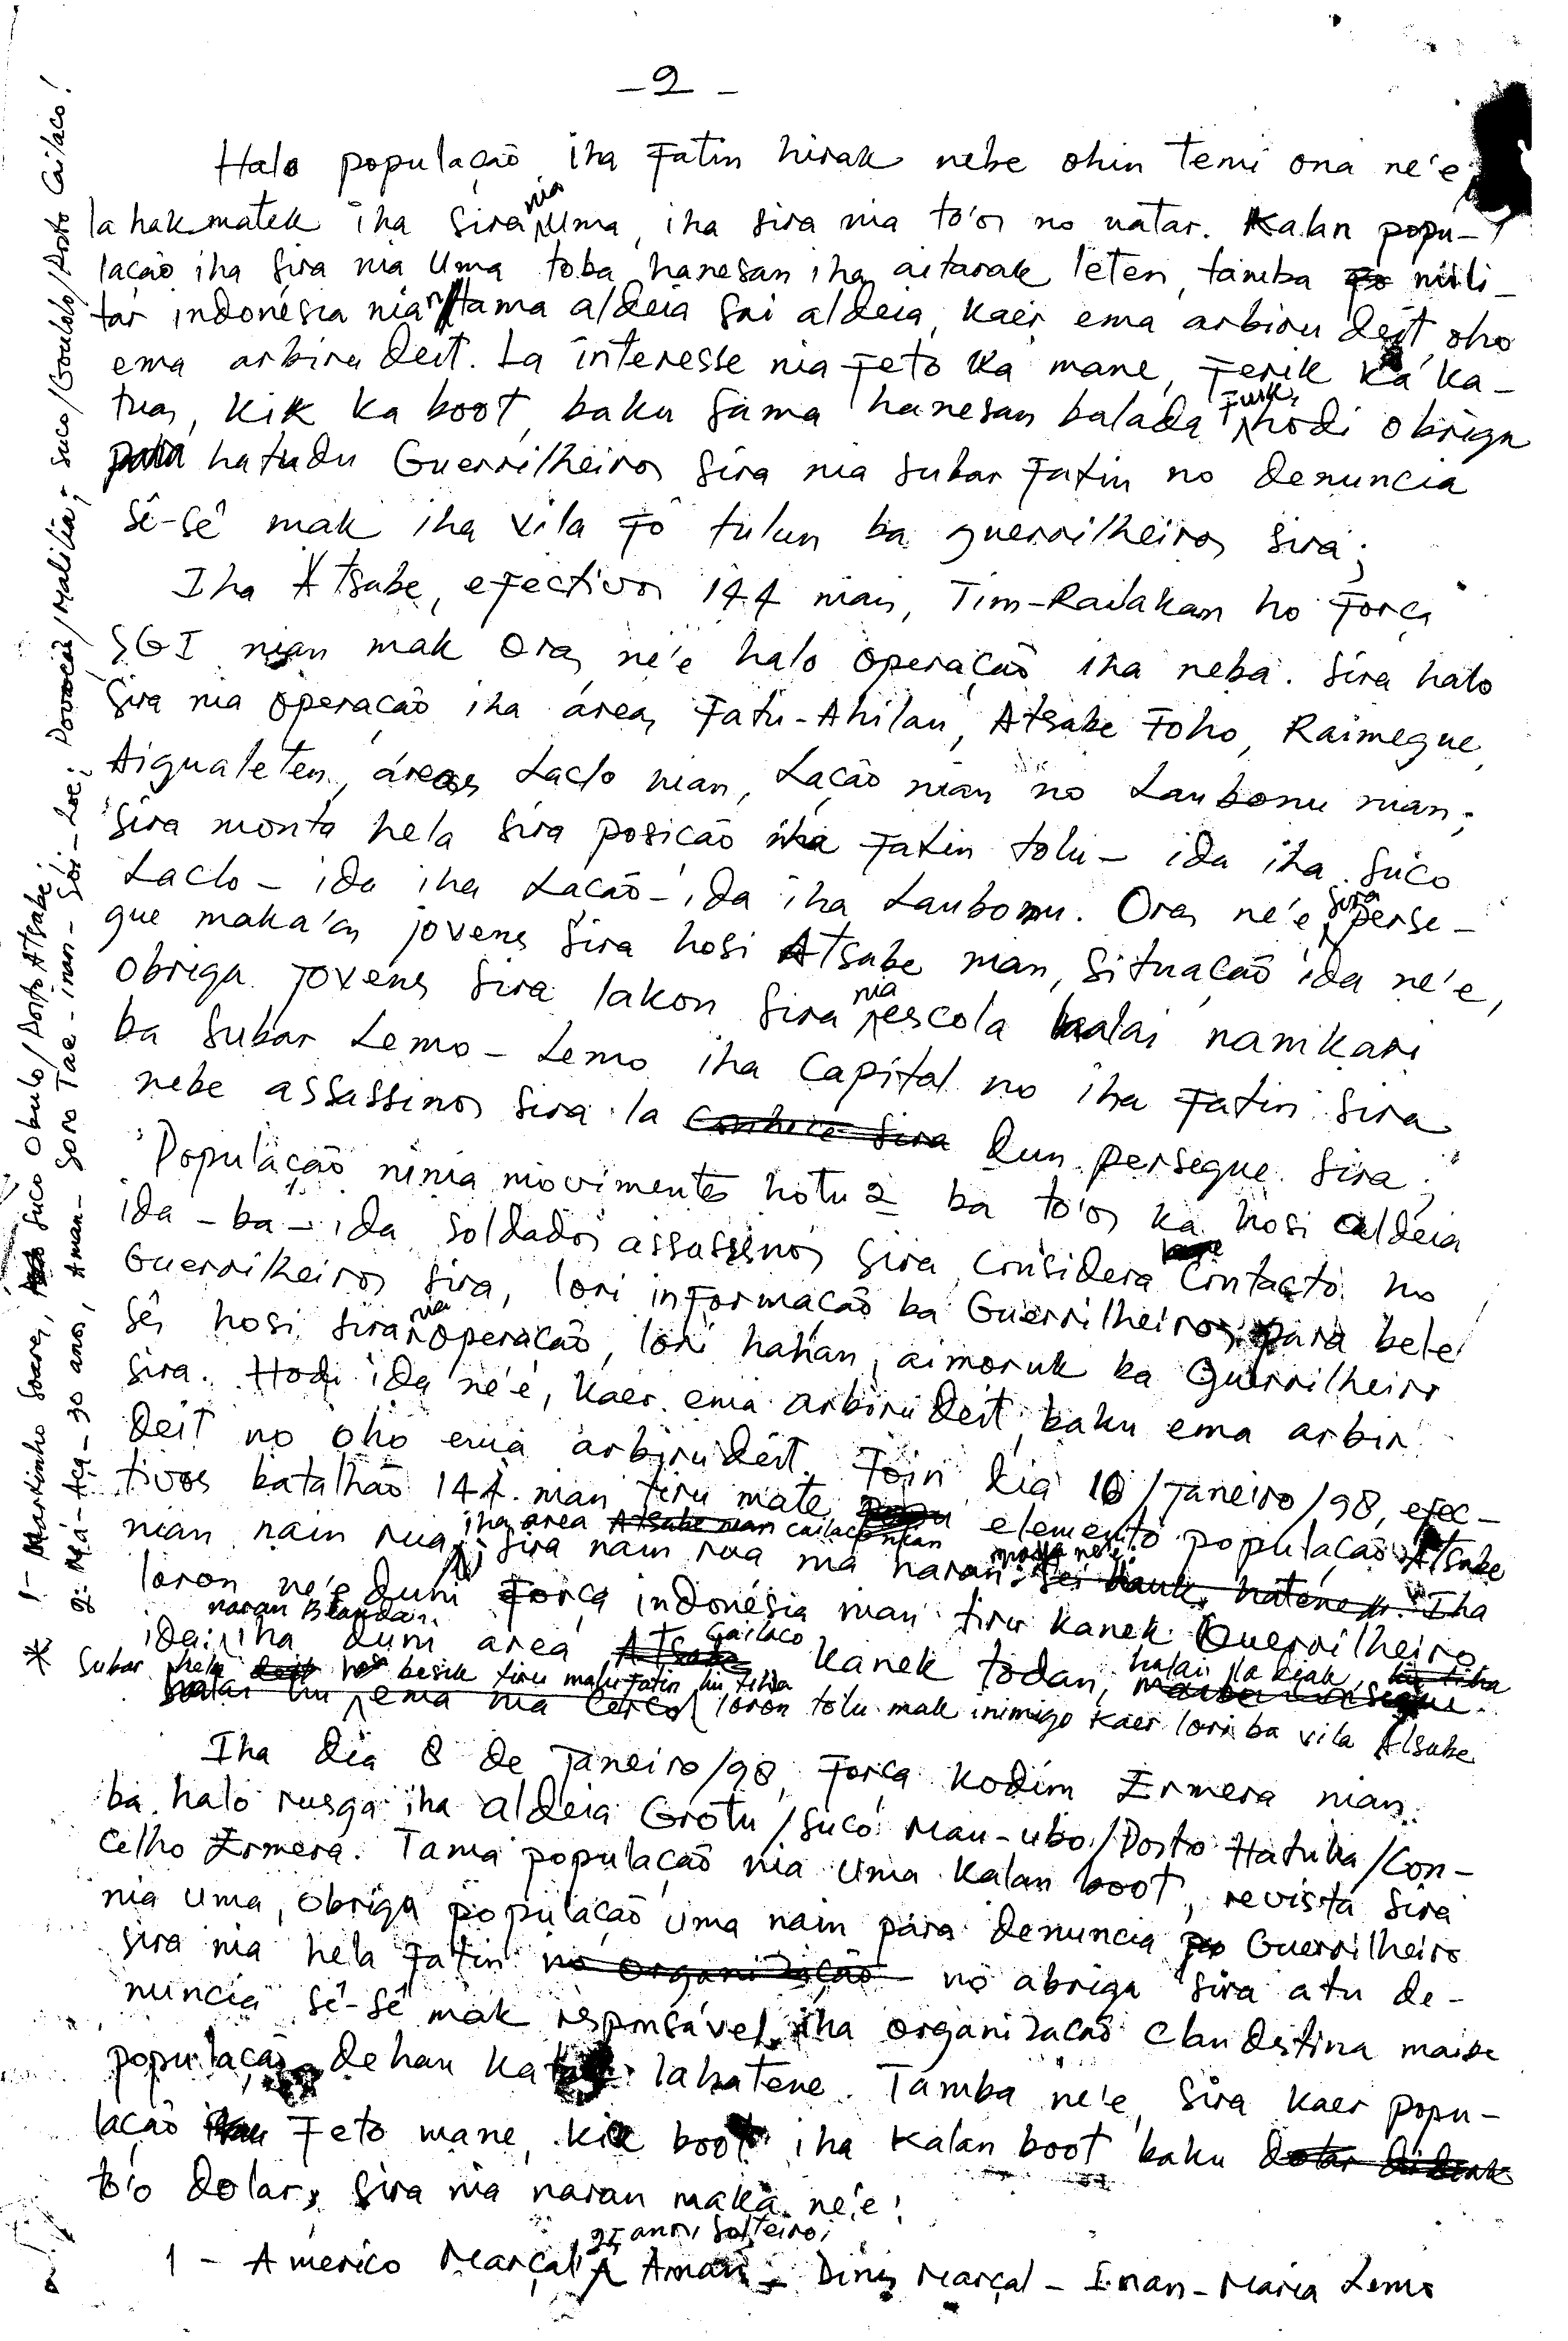 - 2 -
Halo população iha Fatin hirak nebe ohin temi ona ne'e,
la hakmatek iha sira nia Uma, iha sira nia to'os no natar. Kalan popu-
lação iha sira nia Uma toba hanesan iha aitarak leten, tamba mili-
tar indonésia nian tama aldeia sai aldeia, Kaer ema arbiru deit, oho
ema arbiru deit. La interesse nia Feto Ka mane, Ferik Ka Ka-
tuas, Kik Ka boot, baku sama hanesan balada Fuik, hodi obriga
hatudu Guerrilheiros sira nia subar Fatin no denuncia
sê-sê mak iha vila Fô tulun ba guerrilheiros sira;
Iha Atsabe, eFectivos 144 nian, Tim-Railakan ho Força
SGI nian mak oras ne'e halo operação iha neba. Sira halo
sira nia operação iha áreas Fatu-Ahilau, Atsabe Foho, Raimegue,
Aigualeten, áreas Laclo nian, Lação nian no Laubonu nian;
sira monta hela sira posição iha Fatin tolu - ida iha suco
Laclo - ida iha Lacão - ida iha Laubonu. Oras ne'e, sira perse-
gue maka'as jovens sira hosi Atsabe nian, situação ida ne'e,
obriga jovens sira lakon sira nia escola halai namkari
ba subar Lemo-Lemo iha Capital no iha Fatin sira
nebe assassinos sira la ~~conhece sira~~ dun persegue sira;
População ninia movimento hotu2 ba to'os ka hosi aldeia
ida-ba-ida soldados assassinos sira considera contacto ho
Guerrilheiros sira, lori inFormação ba Guerrilheiros para bele
sês hosi sira nia operação, lori hahán, aimoruk ba Guerrilheiro
sira. Hodi ida ne'e, Kaer ema arbiru deit, baku ema arbiru
deit no oho ema arbiru deit. Foin dia 10/Janeiro/98, eFec-
tivos batalhão 144 nian tiru mate elemento população Atsabe
nian nain rua, iha area ~~Atsabe nian~~ Cailaco nian sira nain rua nia naran maka ne'e: ~~sei hauk hatene~~. Iha
loron ne'e duni Força indonésia nian tiru kanek Guerrilheiro
ida, naran Blanda, iha duni area ~~Atsabe~~ Cailaco kanek todan, halai la diak,
subar hela besik tiru malu Fatin hu tiha loron tolu mak inimigo Kaer lori ba vila Atsabe
Iha dia 8 de Janeiro/98, Força Kodim Ermera nian
ba halo rusga iha aldeia Grotu/Suco Mau-ubo/Posto Hatulia/Con-
celho Ermera. Tama população nia uma Kalan boot, revista sira
nia uma, obriga população uma nain para denuncia Guerrilheiro
sira nia hela Fatin ~~no organização~~ no abriga sira atu de-
nuncia sê-sê mak responsável iha organização clandestina maibe
população dehan katak lahatene. Tamba ne'e, sira kaer popu-
lação Feto mane, kik boot iha Kalan boot baku
to'o dolar, sira nia naran maka ne'e:
1 - Américo Marçal, 25 anos, Solteiro; Aman - Dinis Marçal - Inan - Maria Lemo
* 1 - Martinho Soares, suco Obulo/Posto Atsabe;
2. Má-Açã - 30 anos, Aman - Soro Tae - inan - Soi-Loe; Povoação/Malilia; suco/Goulolo/Posto Cailaco!